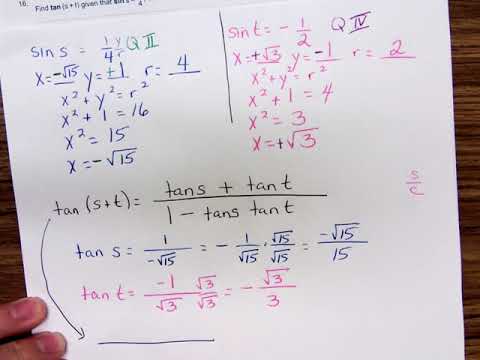 16. Find tan (s + t) given that sin s =
sin s = 1/4 y/r Q II
x = -√15 y = +1 r = 4
x² + y² = r²
x² + 1 = 16
x² = 15
x = -√15
sin t = - 1/2 Q IV
x = +√3 y = -1 r = 2
x² + y² = r²
x² + 1 = 4
x² = 3
x = +√3
tan (s+t) = tan s + tan t / 1 - tan s tan t
s/c
tan s = 1/-√15 = - 1/√15 · √15/√15 = -√15/15
tan t = -1/√3 √3/√3 = - √3/3